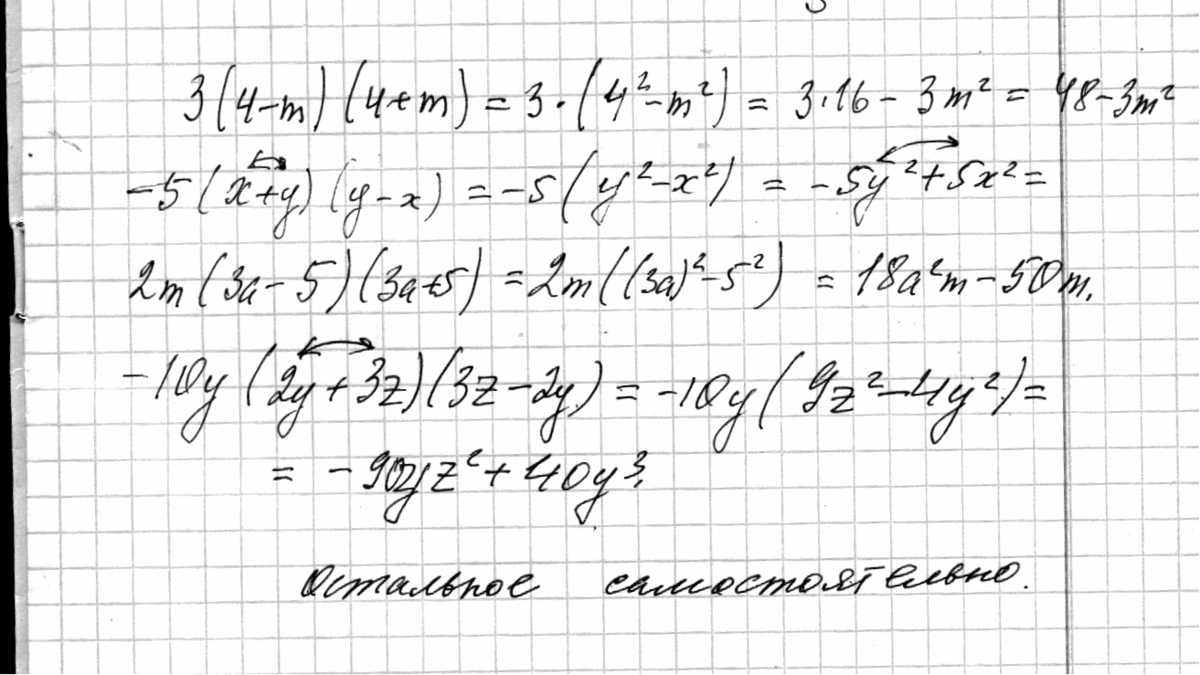 3(4-m)(4+m) = 3·(4²-m²) = 3·16 - 3m² = 48-3m²
-5(x+y)(y-x) = -5(y²-x²) = -5y²+5x² =
2m(3a-5)(3a+5) = 2m((3a)²-5²) = 18a²m-50m.
-10y(2y+3z)(3z-2y) = -10y(9z²-4y²) =
= -90yz²+40y³.
Остальное самостоятельно.